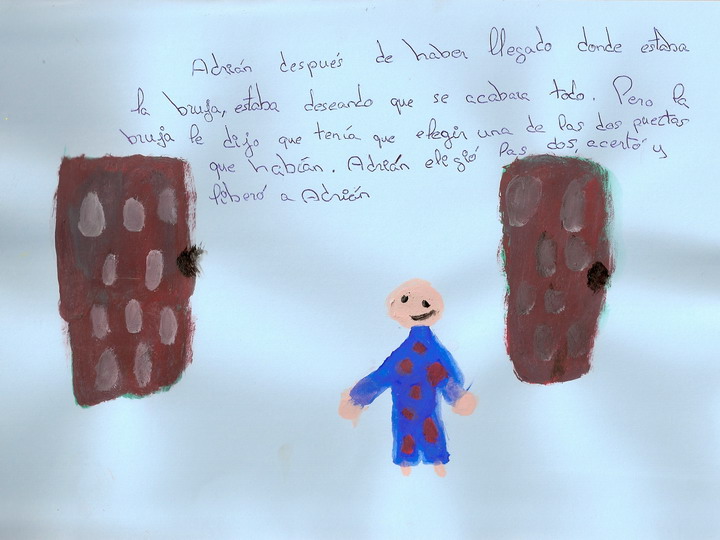 Adrián después de haber llegado donde estaba
la bruja, estaba deseando que se acabara todo. Pero la
bruja le dijo que tenía que elegir una de las dos puertas
que habían. Adrián eligió las dos, acertó y
liberó a Adrián